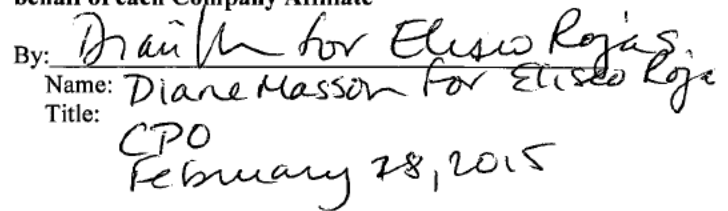 behalf of each Company Affiliate
By: Dian M for Eliseo Rojas
Name: Diane Masson for Eliseo Roja
Title:
CPO
February 28, 2015